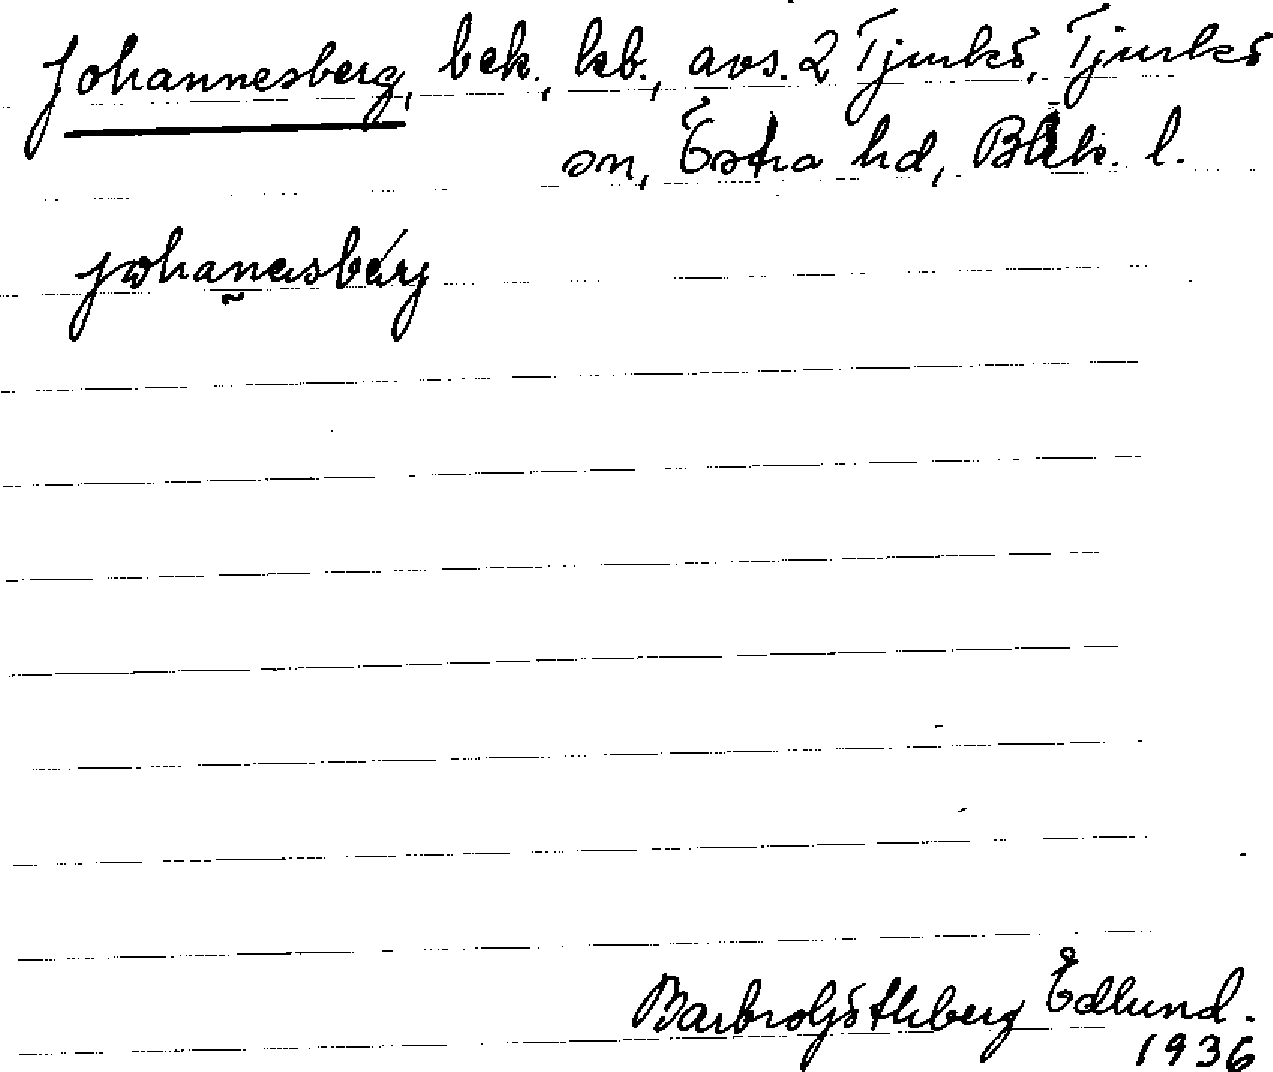 Johannesberg, bek., kb., avs. 2 Tjurkö, Tjurkö
sn, Östra hd, Blek. l.
johanesbärj
Barbro Göthberg Edlund.
1936